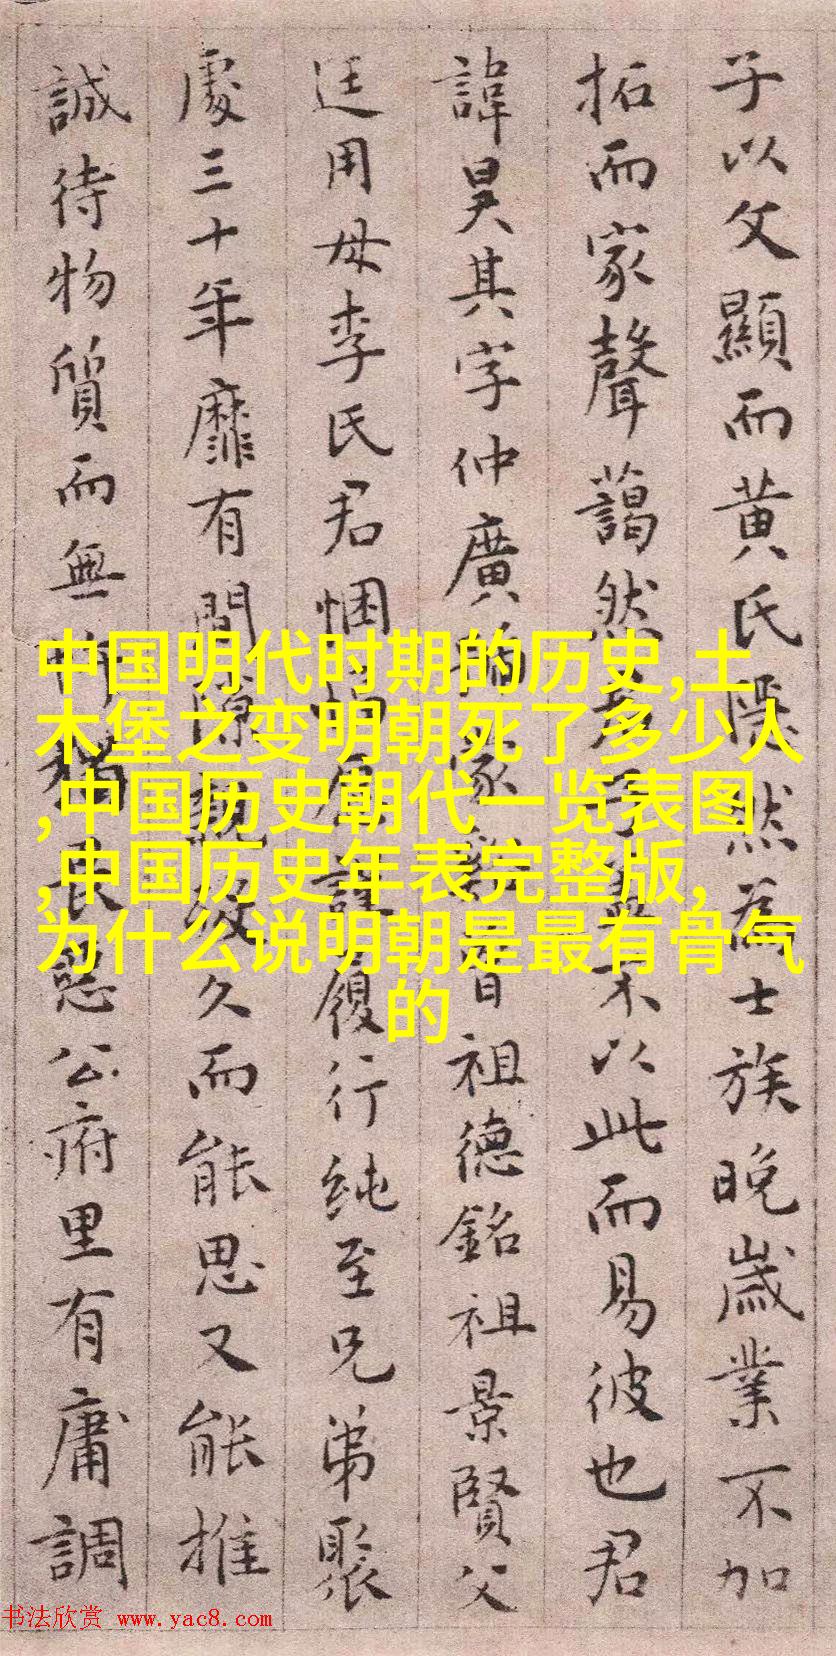 子以文顯而黄氏隱然為士族晚歲業不加
拓而家聲藹然不以此而易彼也君
諱昊其字仲廣家祖德銘祖景賢父
廷用母李氏君悃履行純至兄弟聚
處三十年靡有間隙久而能思又能推
誠待物質而無畏公府里有庸調
中国明代时期的历史,土
木堡之变明朝死了多少人
,中国历史朝代一览表图
,中国历史年表完整版,
为什么说明朝是最有骨气
的
书法欣赏 www.yac8.com